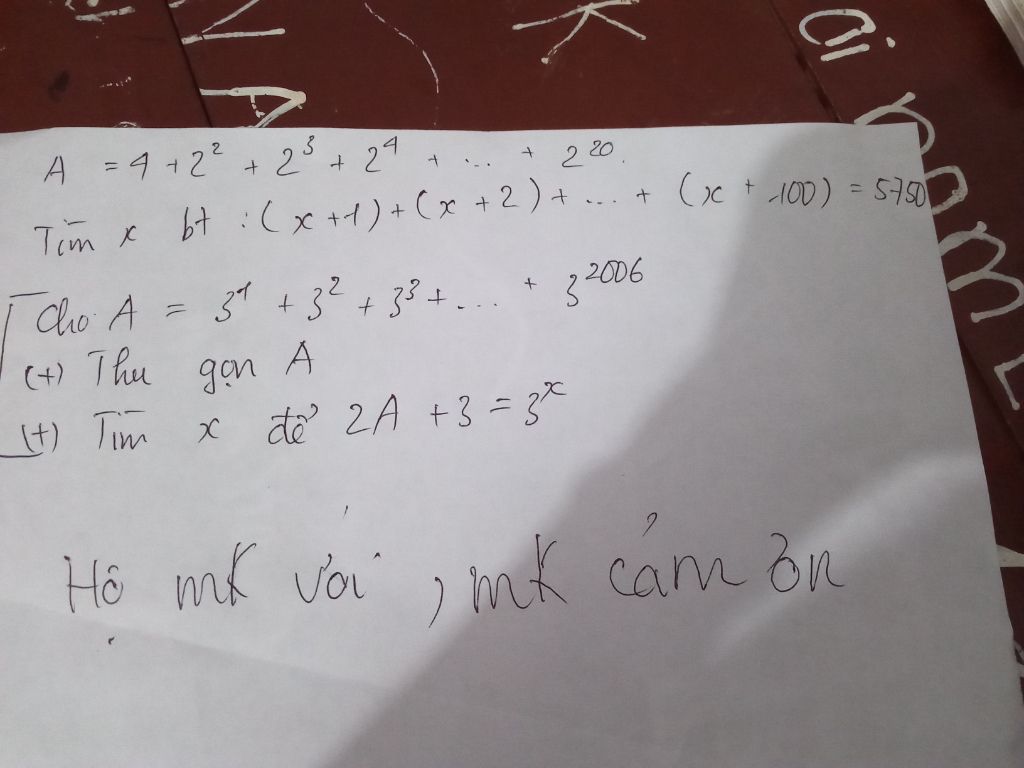 A = 4 + 2² + 2³ + 2⁴ + ... + 2²⁰.
Tìm x bt : (x + 1) + (x + 2) + ... + (x + 100) = 5750
Cho A = 3¹ + 3² + 3³ + ... + 3²⁰⁰⁶
(+) Thu gọn A
(+) Tìm x để 2A + 3 = 3ˣ
Hộ mk với, mk cảm ơn